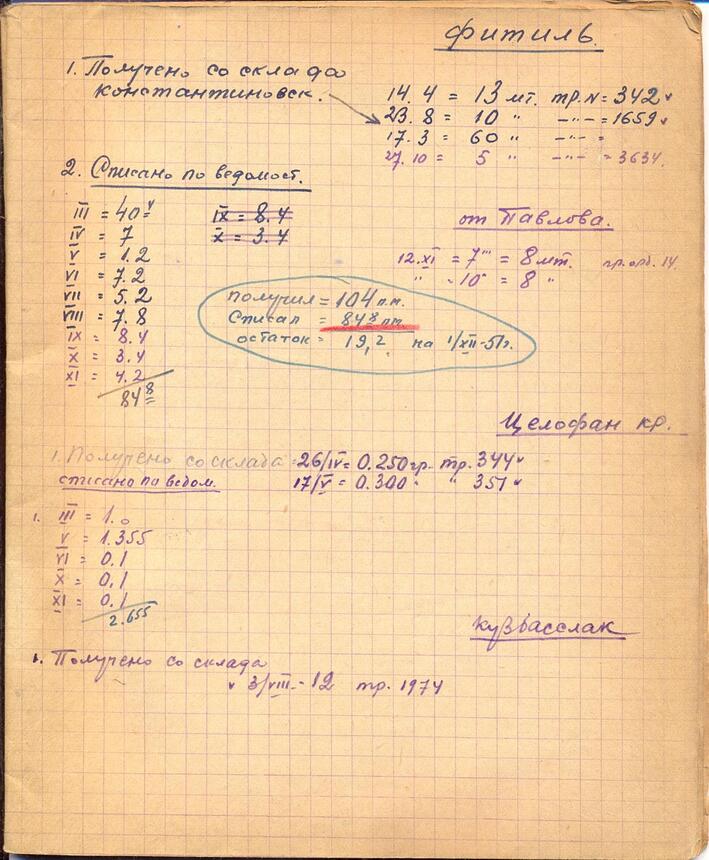 фитиль.
1. Получено со склада
константиновск.
14.4 = 13 мт. тр.N = 342 v
23.8 = 10 " -"- = 1659 v
17.3 = 60 " -"- =
27.10 = 5 " -"- = 3634.
2. Списано по ведомост.
III = 40 = v
IV = 7
V = 1.2
VI = 7.2
VII = 5.2
VIII = 7.8
IX = 8.4
X = 3.4
XI = 4.2
84 8
IX = 8.4
X = 3.4
от Павлова.
12.XI = 7''' = 8 мт.
" -10''' = 8 "
получил = 104 п.м.
Списал = 84 8 пм
остаток = 19,2 на 1/XII-51г.
Целофан кр.
1. Получено со склада = 26/IV = 0.250 гр. тр. 344 v
17/V = 0.300 " " 351 v
списано по ведом.
1. III = 1.0
V = 1.355
VI = 0.1
X = 0,1
XI = 0.1
2.655
кузбасслак
1. Получено со склада
v 3/VIII - 12 тр. 1974